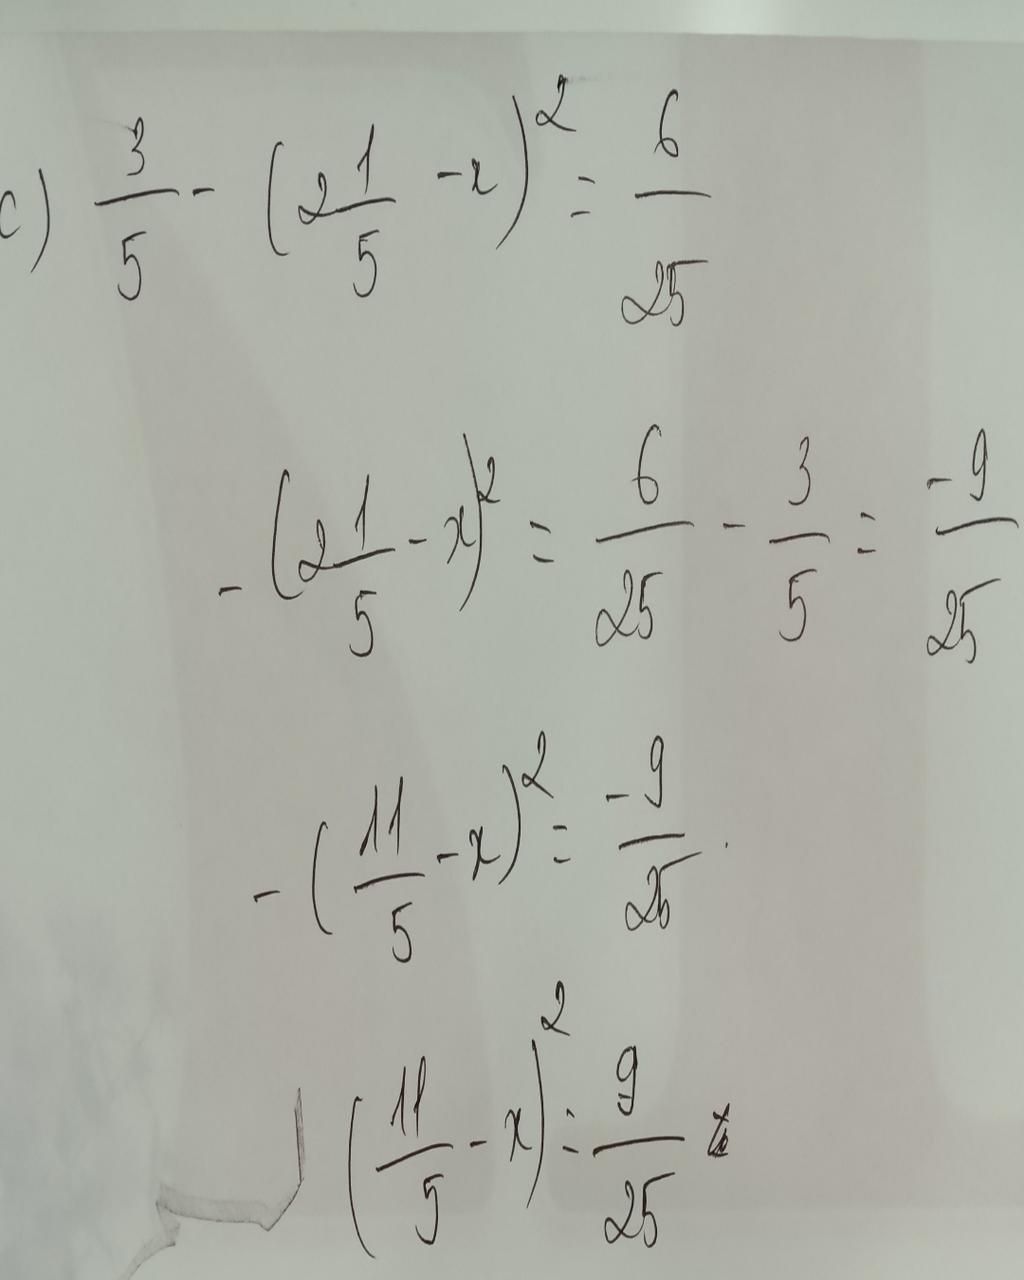 c) 3/5 - (2 1/5 - x)^2 = 6/25
- (2 1/5 - x)^2 = 6/25 - 3/5 = -9/25
- (11/5 - x)^2 = -9/25
(11/5 - x)^2 = 9/25